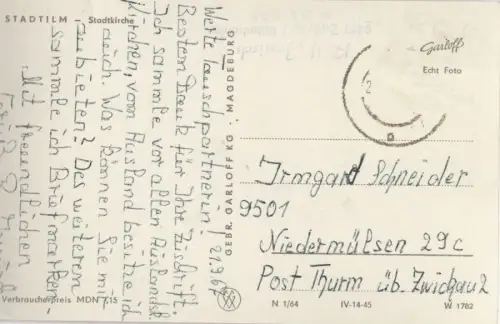 STADTILM Stadtkirche
21.9.67
Werte Tauschpartnerin!
Besten Dank für Ihre Zuschrift.
Ich sammle vor allen Auslandsk.
Kirchen, vom Ausland besitze ich
auch. Was können Sie mir
anbieten? Des weiteren
sammle ich Briefmarken.
Mit freundlichen
Verbraucherpreis MDN
GEBR. GARLOFF KG · MAGDEBURG
Garloff
Echt Foto
Irmgard Schneider
9501
Niedermülsen 29c
Post Thurm üb. Zwickau 2
N 1/64 IV-14-45 W 1782